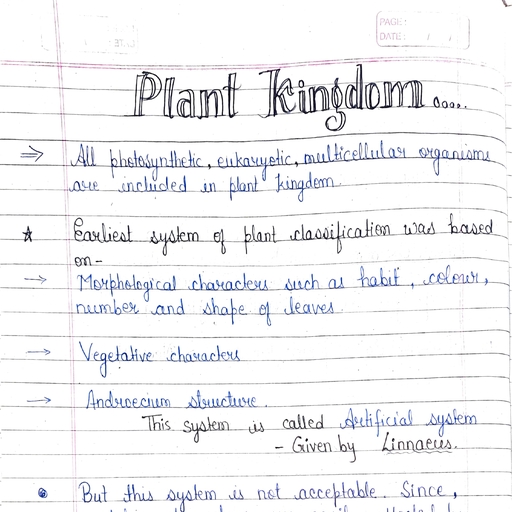 PAGE:
DATE: / /
Plant Kingdom....
⇒ All photosynthetic, eukaryotic, multicellular organisms
are included in plant kingdom.
☆ Earliest system of plant classification was based
on-
→ Morphological characters such as habit, colour,
number and shape of leaves.
→ Vegetative characters
→ Androecium structure.
This system is called Artificial system
- Given by Linnaeus.
• But this system is not acceptable. Since,